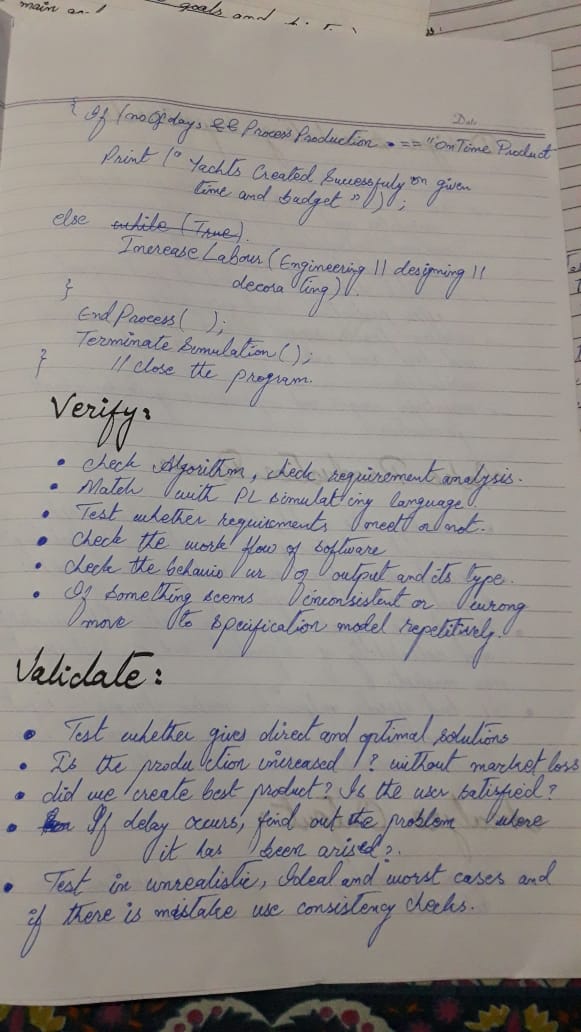 main and
goals and
Date
{ If (noOfdays && Process Production == "OnTime Product
Print (" Yachts Created Successfuly on given
time and budget ") ;
else while (True)
Increase Labour (Engineering || designing ||
decorating)
}
End Process ( );
Terminate Simulation ( );
} // close the program.
Verify:
• Check Algorithm, check requirement analysis.
• Match with PL simulating language.
• Test whether requirements meet or not.
• Check the work flow of software
• check the behaviour of output and its type.
• If something seems inconsistent or wrong
move to specification model repetitively.
Validate:
• Test whether gives direct and optimal solutions
• Is the production increased ? without market loss
• did we create best product? Is the user satisfied?
• If delay occurs, find out the problem where
it has been arised?.
• Test in unrealistic, Ideal and worst cases and
if there is mistake use consistency checks.